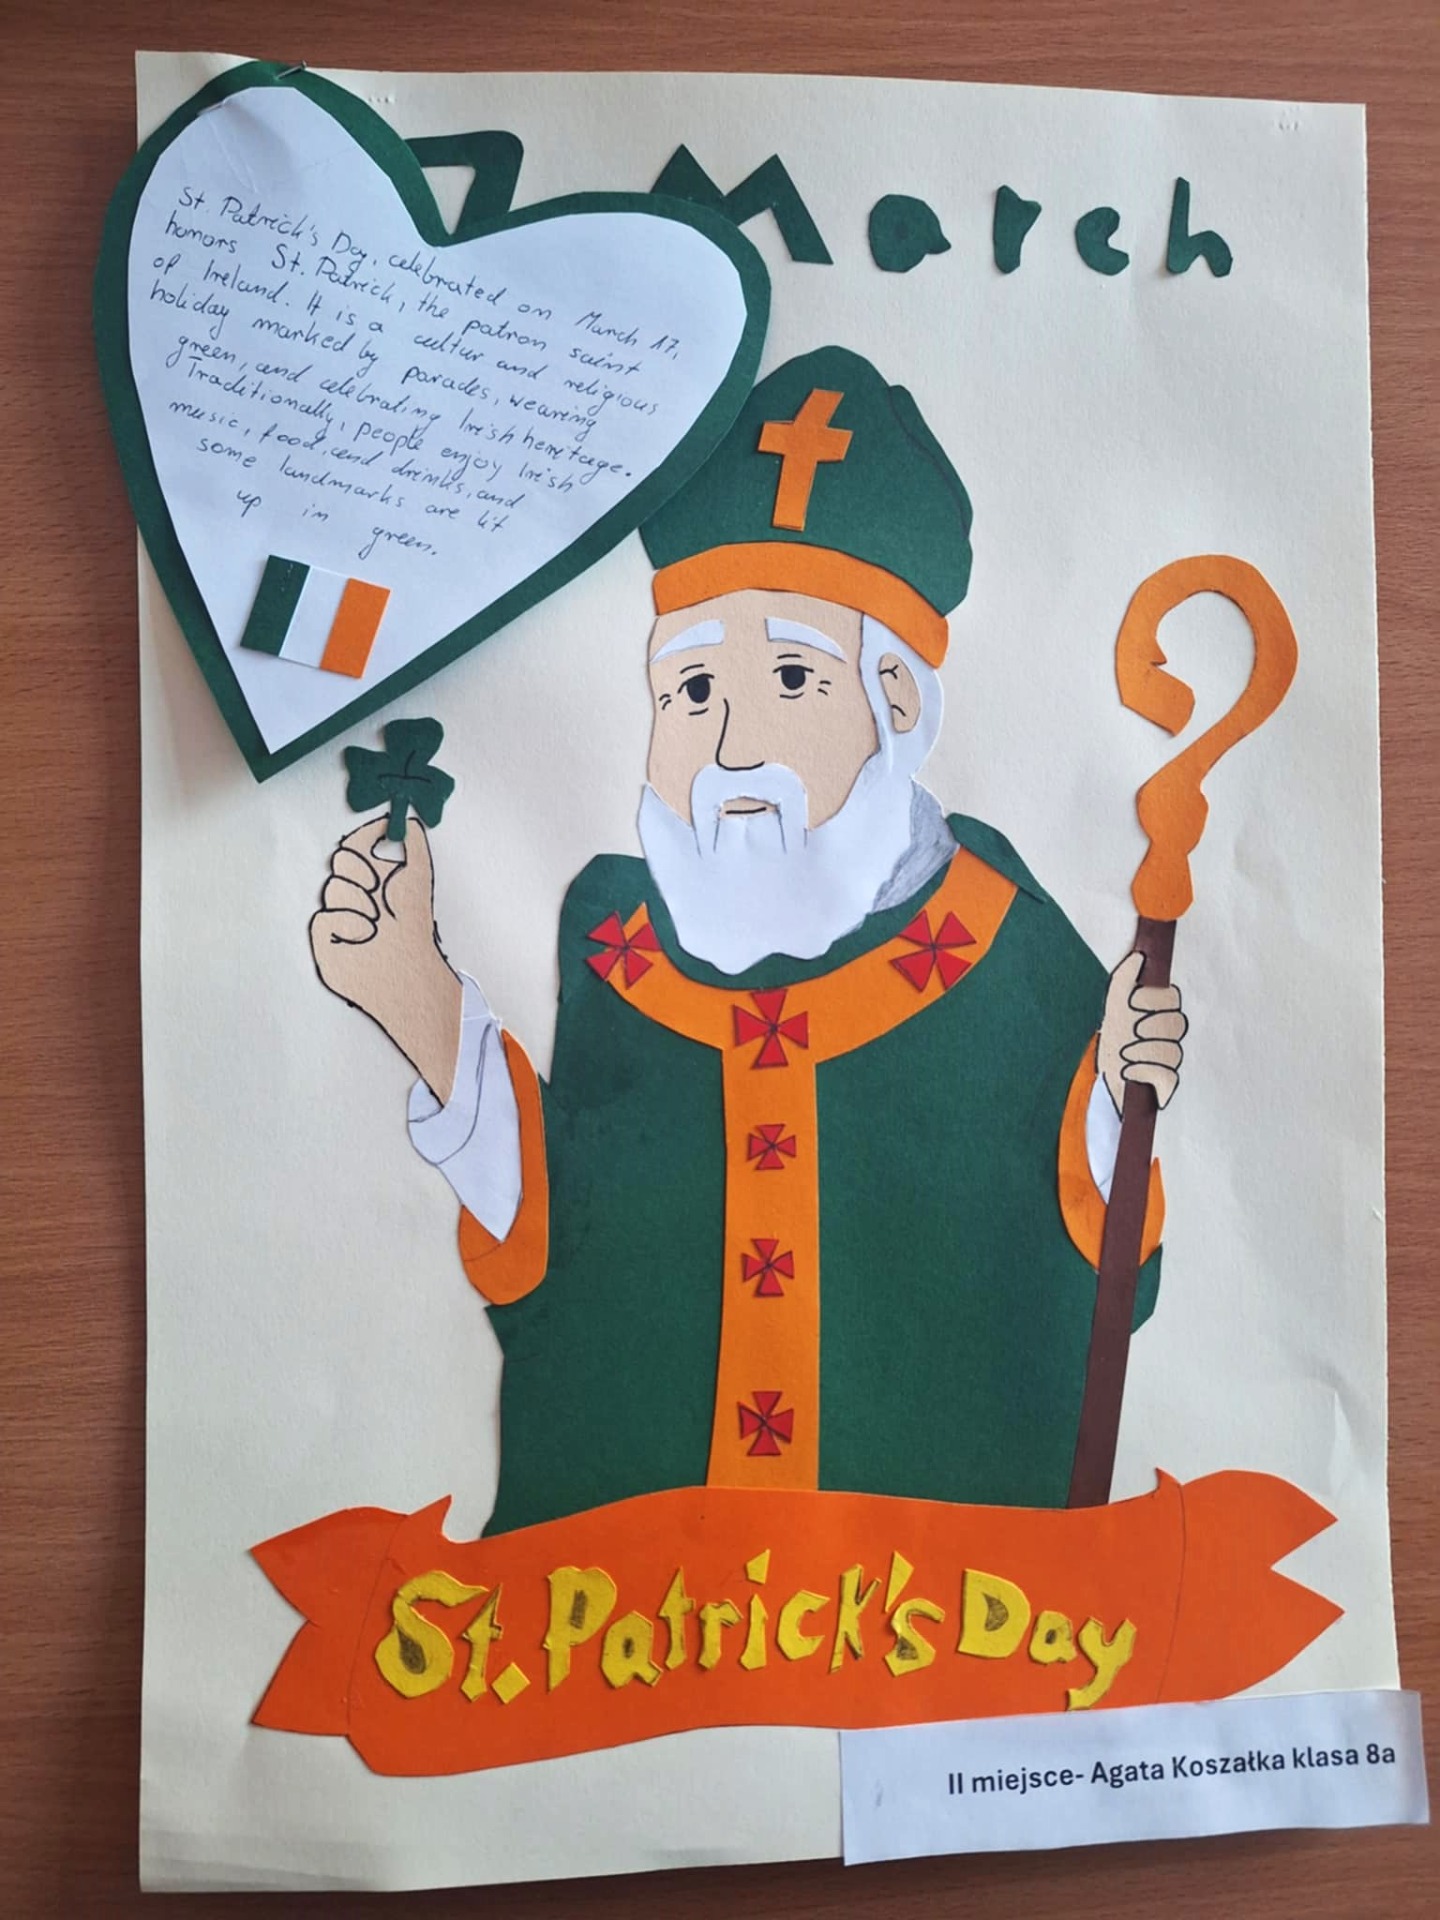 7 March
St. Patrick's Day, celebrated on March 17,
honors St. Patrick, the patron saint
of Ireland. It is a cultur and religious
holiday marked by parades, wearing
green, and celebrating Irish heritage.
Traditionally, people enjoy Irish
music, food, and drinks, and
some landmarks are lit
up in green.
St. Patrick's Day
II miejsce- Agata Koszałka klasa 8a